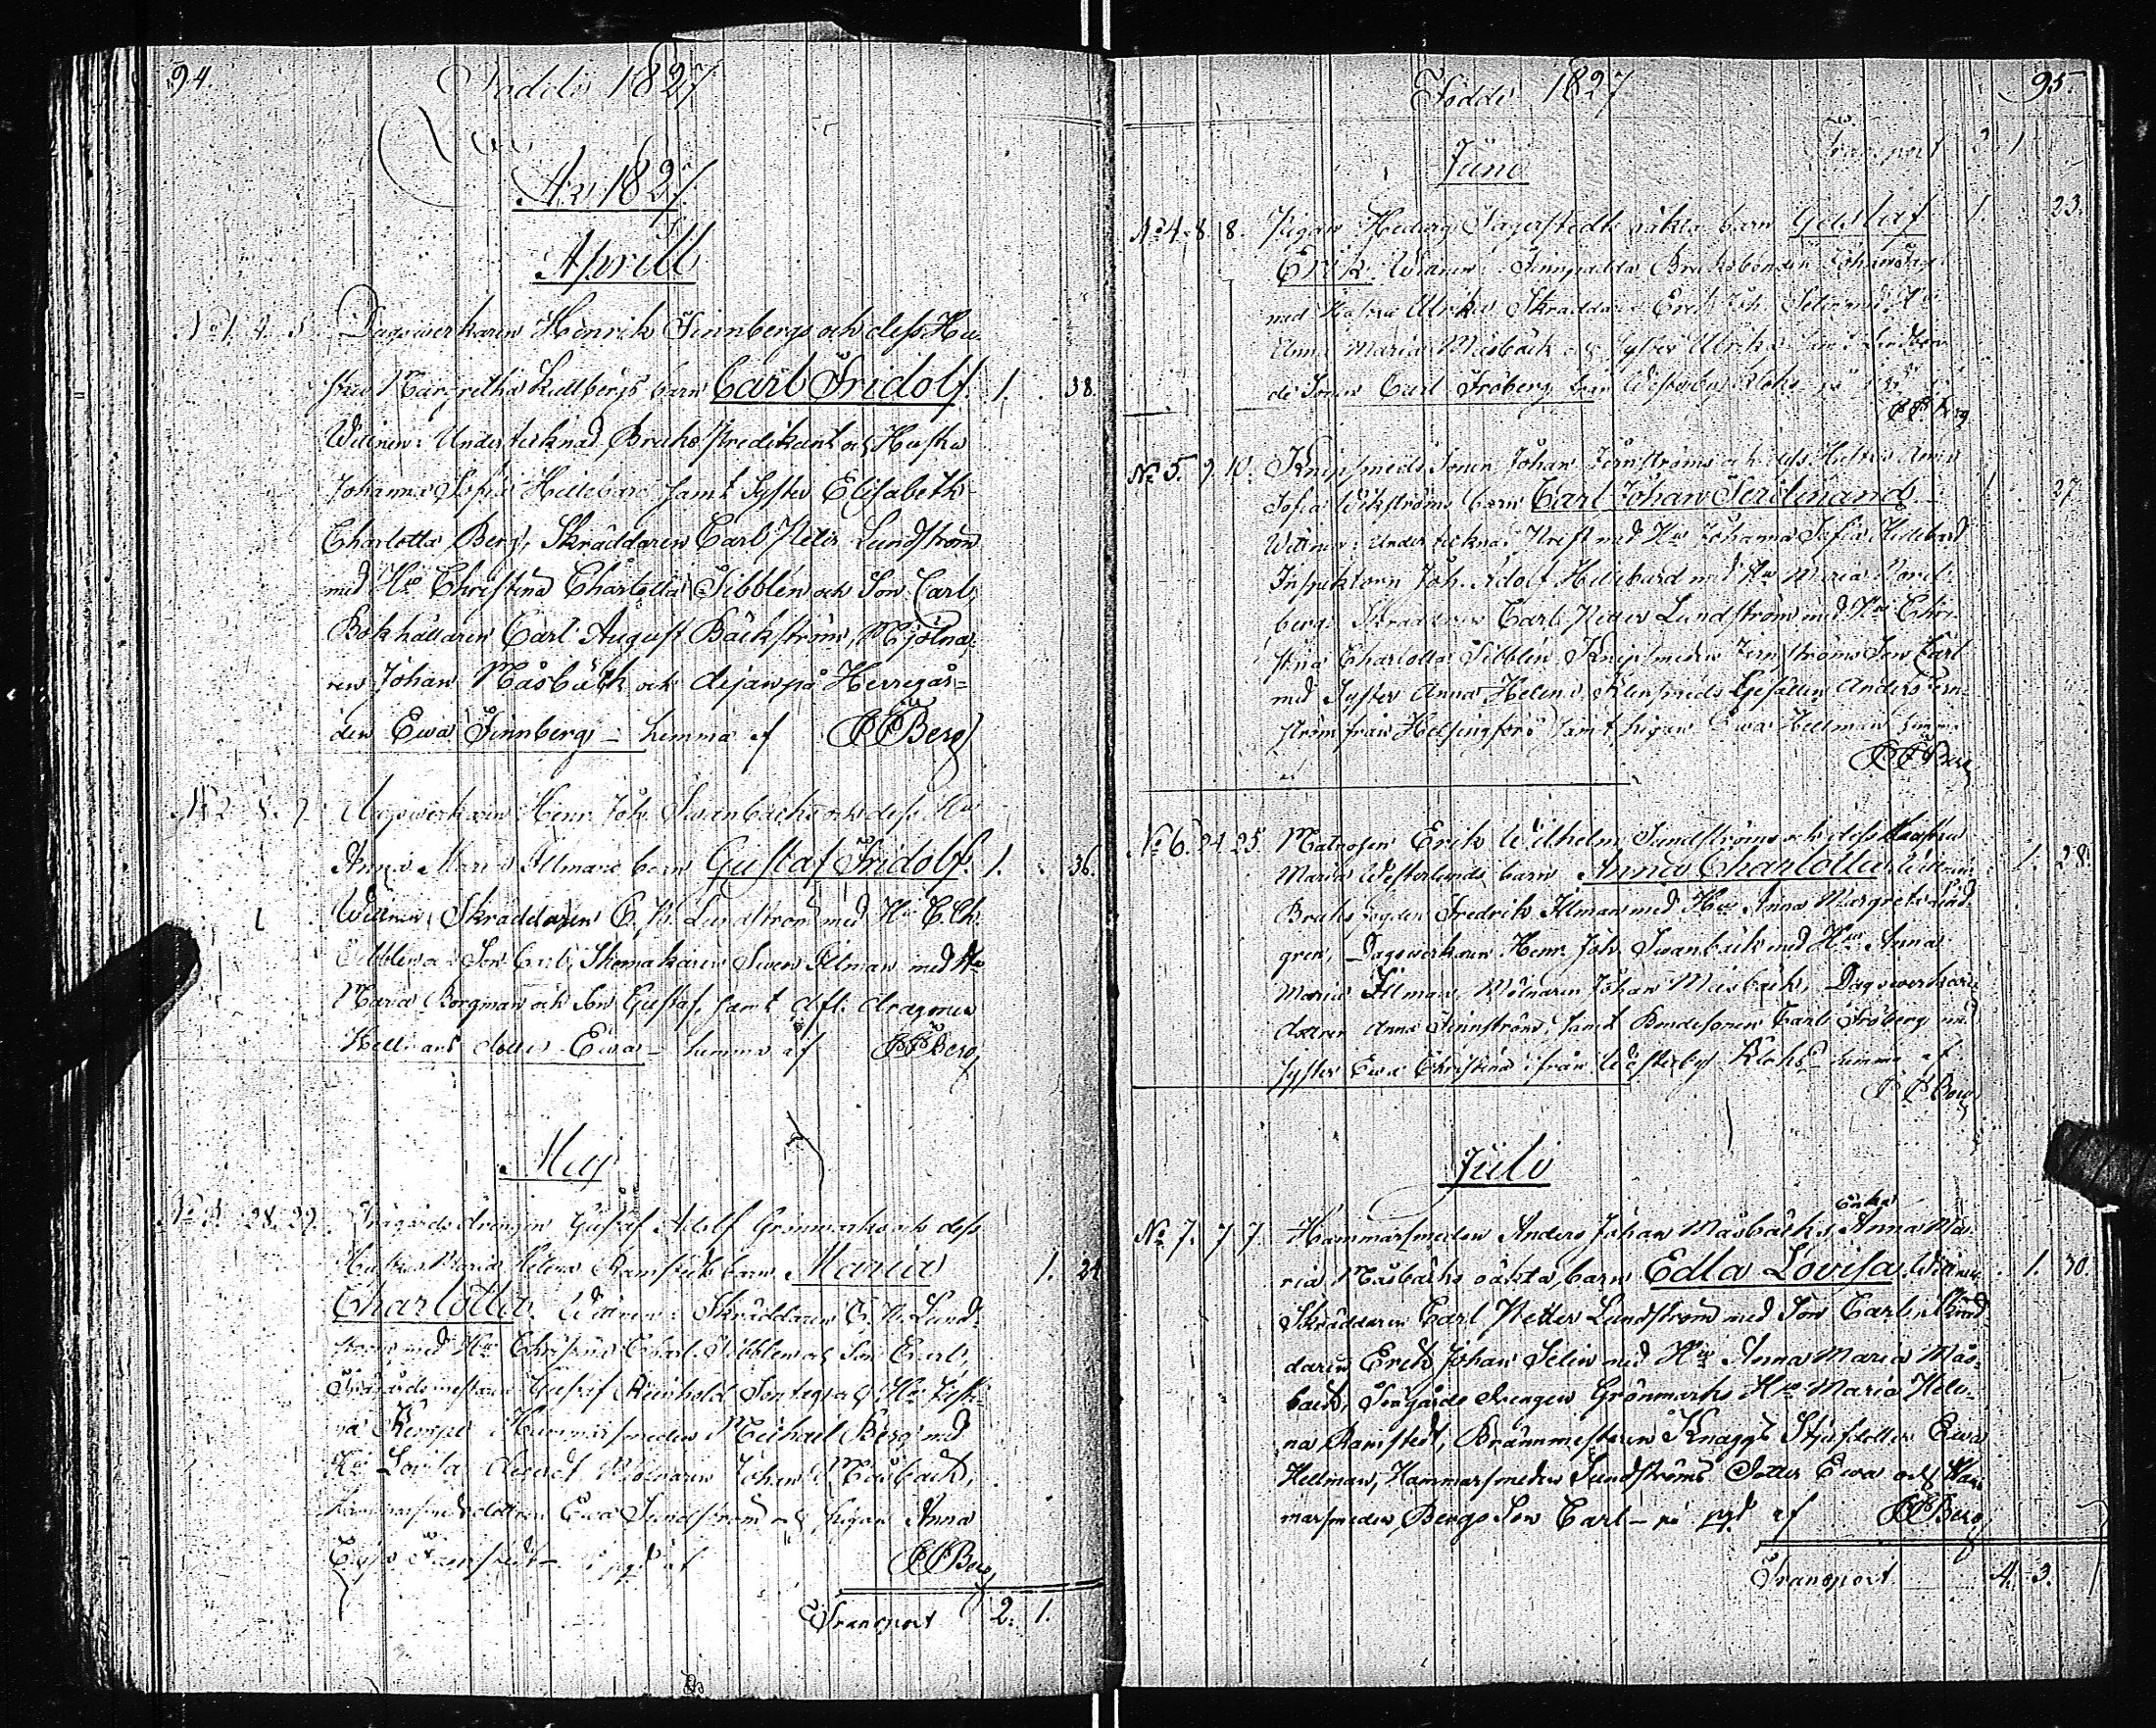 94.
Födde 1827
År 1827.
Aprill
No 1. 4. 5. Dagsverkaren Henrik Finnbergs och dess Hu-
stru Margretha Kullbergs barn Carl Fridolf. 1. 38.
Wittnen: Undertecknad Bruks Predikant och Hustru
Johanna Sofia Hellebard samt Syster Elisabeth
Charlotta Berg, Skräddaren Carl Peter Lundström
med Hu Christina Charlotta Sibblén och Son Carl,
Bokhållaren Carl August Bäckström, Mjölna-
ren Johan Måsbäck och dejan på Herregår-
den Ewa Finnberg – hemma af PPBerg
No 2. 8. 9. Dagsverkaren Henr. Joh. Swanbäcks och dess Hu
Anna Maria Illmans barn Gustaf Fridolf. 1. 36.
Wittnen Skräddaren C. P. Lundström med Hu C Ch
Sibblén och Son Carl, Skomakaren Swen Illman med Hu
Maria Borgman och Son Gustaf, samt afl. dragonen
Hellmans dotter Ewa – hemma af PPBerg
Maji
No 3. 28. 29. Trägårdsdrängen Gustaf Adolf Grönmarks och dess
Hustrus Maria Helena Ramstedts barn Maria 1. 24
Charlotta. Wittnen: Skräddaren C. P. Lund-
ström med Hu Christina Charl. Sibblén och Son Carl,
Trägårdsmästaren Gustaf Reinhold och Hu Justi-
na Kempe Hammarsmeden Michael Berg med
Hu Lovisa Mölnaren Johan Måsbäck,
Hammarsmedsdottren Ewa Sundström och pigan Anna
Ramstedt – af PPBerg
Transport 2. 1.
Födde 1827
95.
Transport 2. 1
Juni
No 4. 8. 8. Pigan Hedvig Fagerstedts oäkta barn Gustaf 1. 23.
Erik. Wittnen: Bruksbonden Johan
med Hustru Ulrika Skräddaren Erik Joh. Selin med Hu
Anna Maria Måsbäck och Syster Ulrika samt Landbon-
de Sonen Carl Fröberg från Westerby Rekås
PPBerg
No 5. 9. 10. Knipsmeds Sonen Johan Jernströms och dess Hustrus Anna
Sofia Wikströms barn Carl Johan Ferdinand 1. 27.
Wittnen: Undertecknad Prest med Hu Johanna Sofia Hellebard
Inspektorn Joh. Adolf Hellebard med Hu Maria
berg Skräddaren Carl Petter Lundström med Hu Chri-
stina Charlotta Sibblén Knipsmeden Jernströms Son Carl
med Syster Anna Helena, Klensmeds Gesällen Anders Jern-
ström från Helsingfors samt pigan Ewa Hellman hemma
af PPBerg
No 6. 24. 25. Matrosen Erik Wilhelm Sundströms och dess Hustrus
Maria Westerlunds barn Anna Charlotta. Wittnen: 1. 28.
Bruksfogden Fredrik Illman med Hu Anna Margreta Lind-
gren, Dagsverkaren Henr. Joh. Swanbäck med Hu Anna
Maria Illman, Mölnaren Johan Måsbäck, Dagsverkare
dottren Anna Finnström, samt Bondesonen Carl Fröberg med
Syster Ewa Christina ifrån Westerby Rekås – hemma af
PPBerg
Juli
No 7. 7 7. Hammarsmeden Anders Johan Måsbäcks Enkas Anna Ma-
ria Måsbäcks oäkta barn Edla Lovisa. Wittnen: 1. 30.
Skräddaren Carl Petter Lundström med Son Carl, Skräd-
daren Erik Johan Selin med Hu Anna Maria Mås-
bäck, Trägårds Drengen Grönmarks Hu Maria Hele-
na Ramstedt, Brännmästaren Knaggs Styfdotter Ewa
Hellman, Hammarsmeden Sundströms Dotter Ewa och Ham-
marsmeden Bergs Son Carl – på pgd af PPBerg
Transport 4. 3.